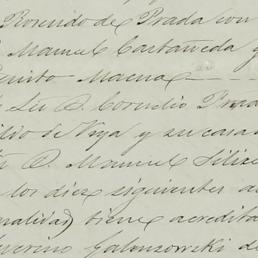 Rosendo de Prada con
Manuel Castañeda y
Benito Maena
Lic D. Cornelio Prada
de Vega y su casa
D. Manuel Felize
los diez siguientes a
nalidad) tiene acredita
verino Galonzowski de